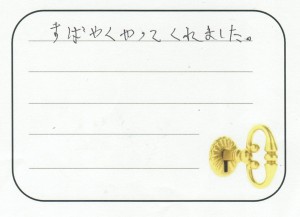 すばやくやってくれました。